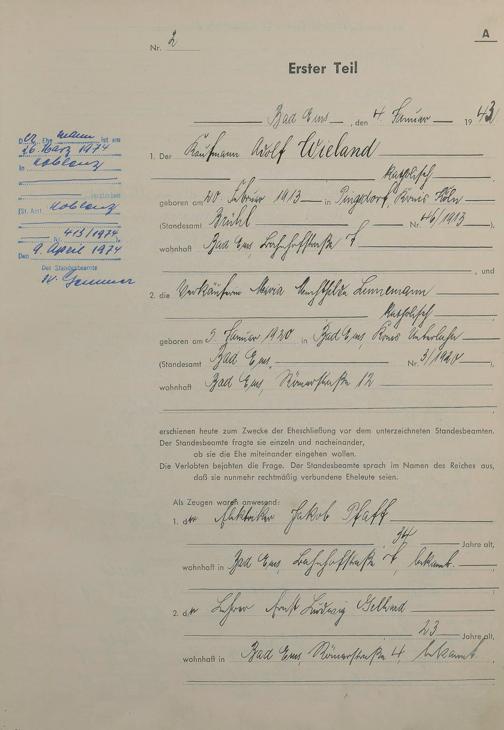 A
Nr. 2
Erster Teil
Bad Ems, den 4. Januar 1943
1. Der Kaufmann Adolf Wieland
katholisch
geboren am 20. Februar 1913 in Pingsdorf, Kreis Köln
(Standesamt Brühl Nr. 46/1913),
wohnhaft Bad Ems, Bahnhofstraße
, und
2. die Verkäuferin Maria Mechthilde Linnemann
katholisch
geboren am 5. Januar 1920 in Bad Ems, Kreis Unterlahn
(Standesamt Bad Ems Nr. 3/1920),
wohnhaft Bad Ems, Römerstraße 12
erschienen heute zum Zwecke der Eheschließung vor dem unterzeichneten Standesbeamten.
Der Standesbeamte fragte sie einzeln und nacheinander,
ob sie die Ehe miteinander eingehen wollen.
Die Verlobten bejahten die Frage. Der Standesbeamte sprach im Namen des Reiches aus,
daß sie nunmehr rechtmäßig verbundene Eheleute seien.
Als Zeugen waren anwesend:
1. der Elektriker Jakob Pfaff
34 Jahre alt,
wohnhaft in Bad Ems, Bahnhofstraße, bekannt.
2. der Lehrer Ernst Ludwig
23 Jahre alt,
wohnhaft in Bad Ems, Römerstraße 4, bekannt.
Der Ehemann ist am
26. März 1974
in Koblenz
verstorben
(St. Amt Koblenz
Nr. 413/1974).
Den 9. April 1974
Der Standesbeamte